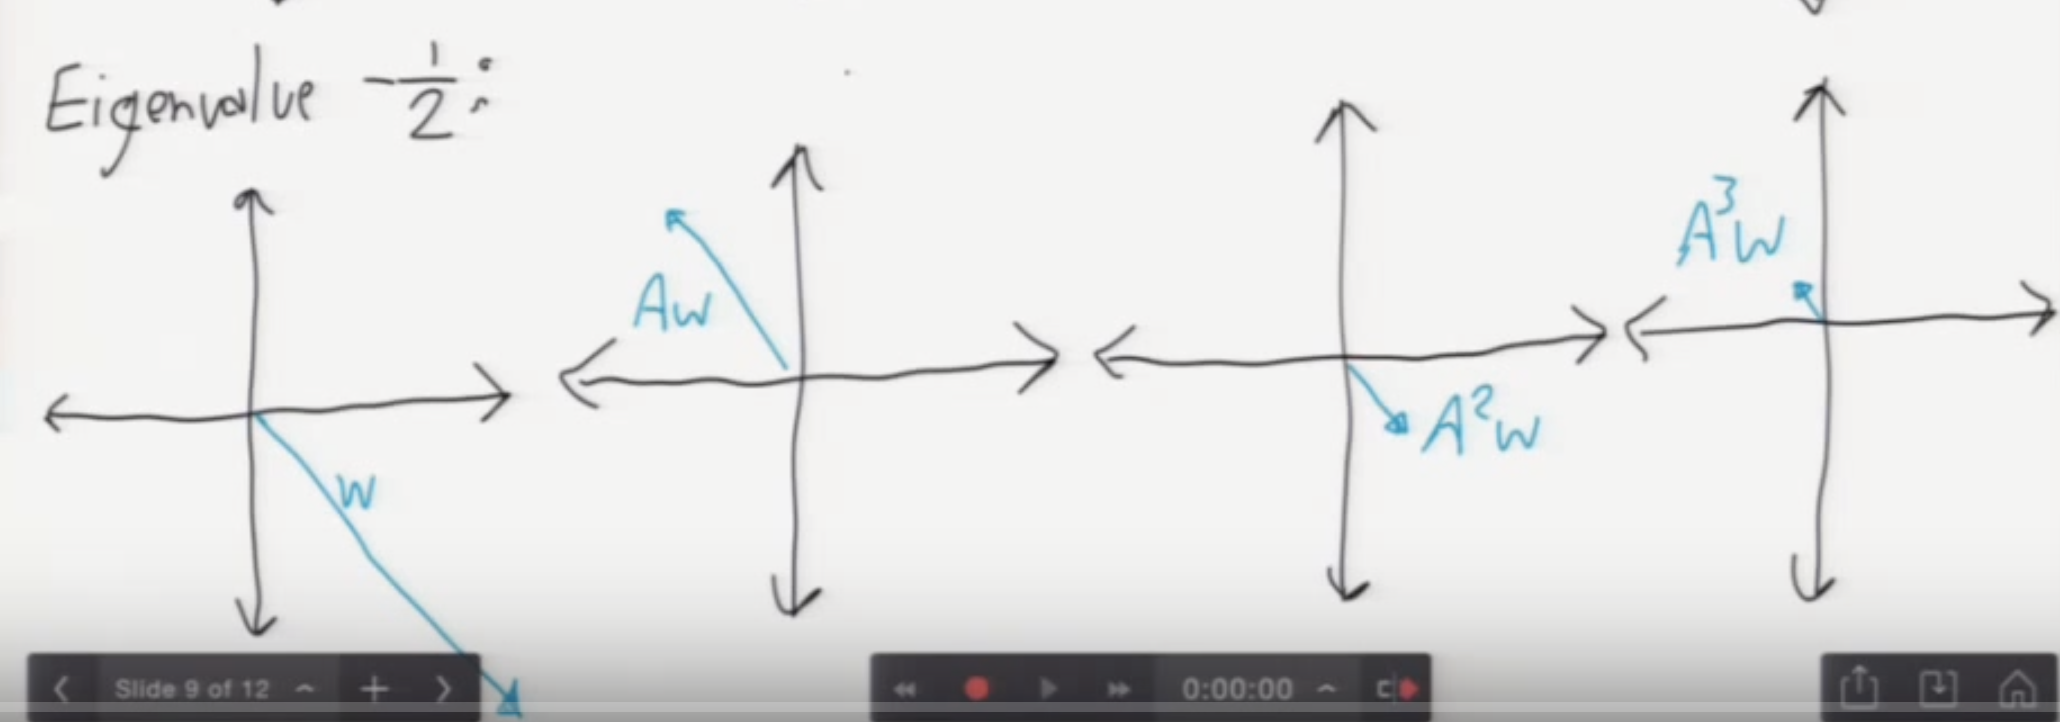 Eigenvalue -1/2:
A³w
Aw
A²w
w
Slide 9 of 12
0:00:00